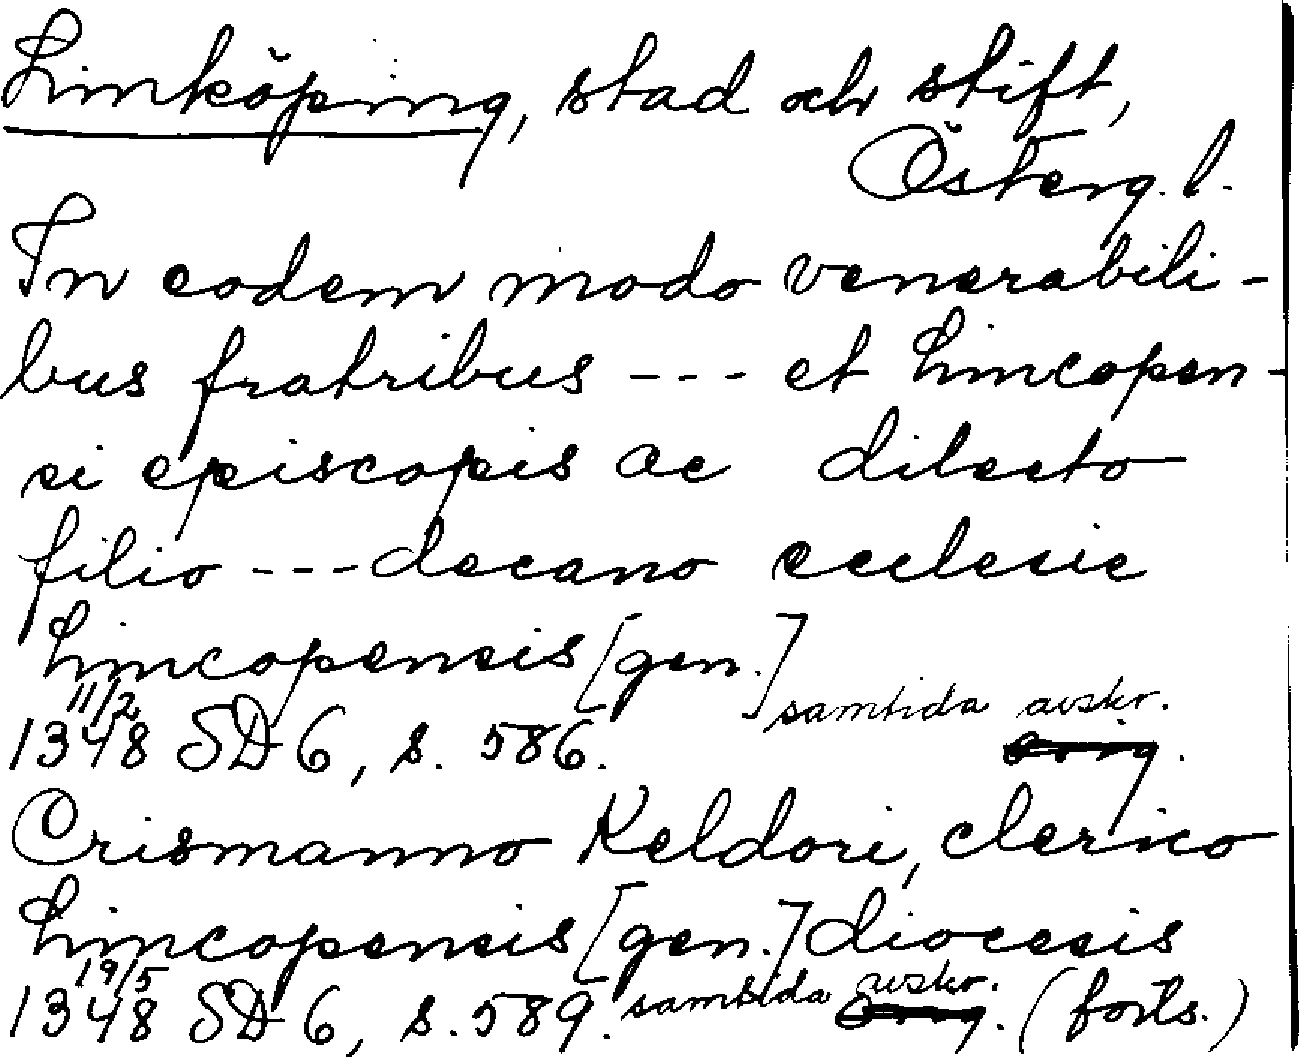 Linköping, stad och stift,
Österg. l.
In eodem modo venerabili-
bus fratribus --- et Lincopen-
si episcopis ac dilecto
filio --- decano ecclesie
Lincopensis [gen.]
11/2 samtida avskr.
1348 SD 6, s. 586. orig.
Crismanno Keldori, clerico
Lincopensis [gen.] diocesis
19/5 samtida avskr.
1348 SD 6, s. 589. orig. (forts.)